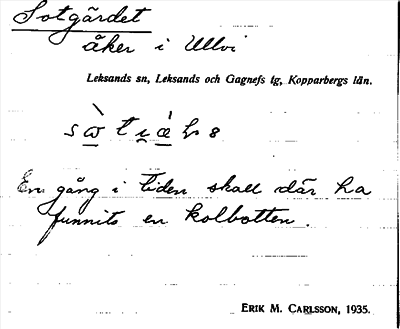 Sotgärdet
åker i Ullvi
Leksands sn, Leksands och Gagnefs tg, Kopparbergs län.
En gång i tiden skall där ha
funnits en kolbotten.
ERIK M. CARLSSON, 1935.